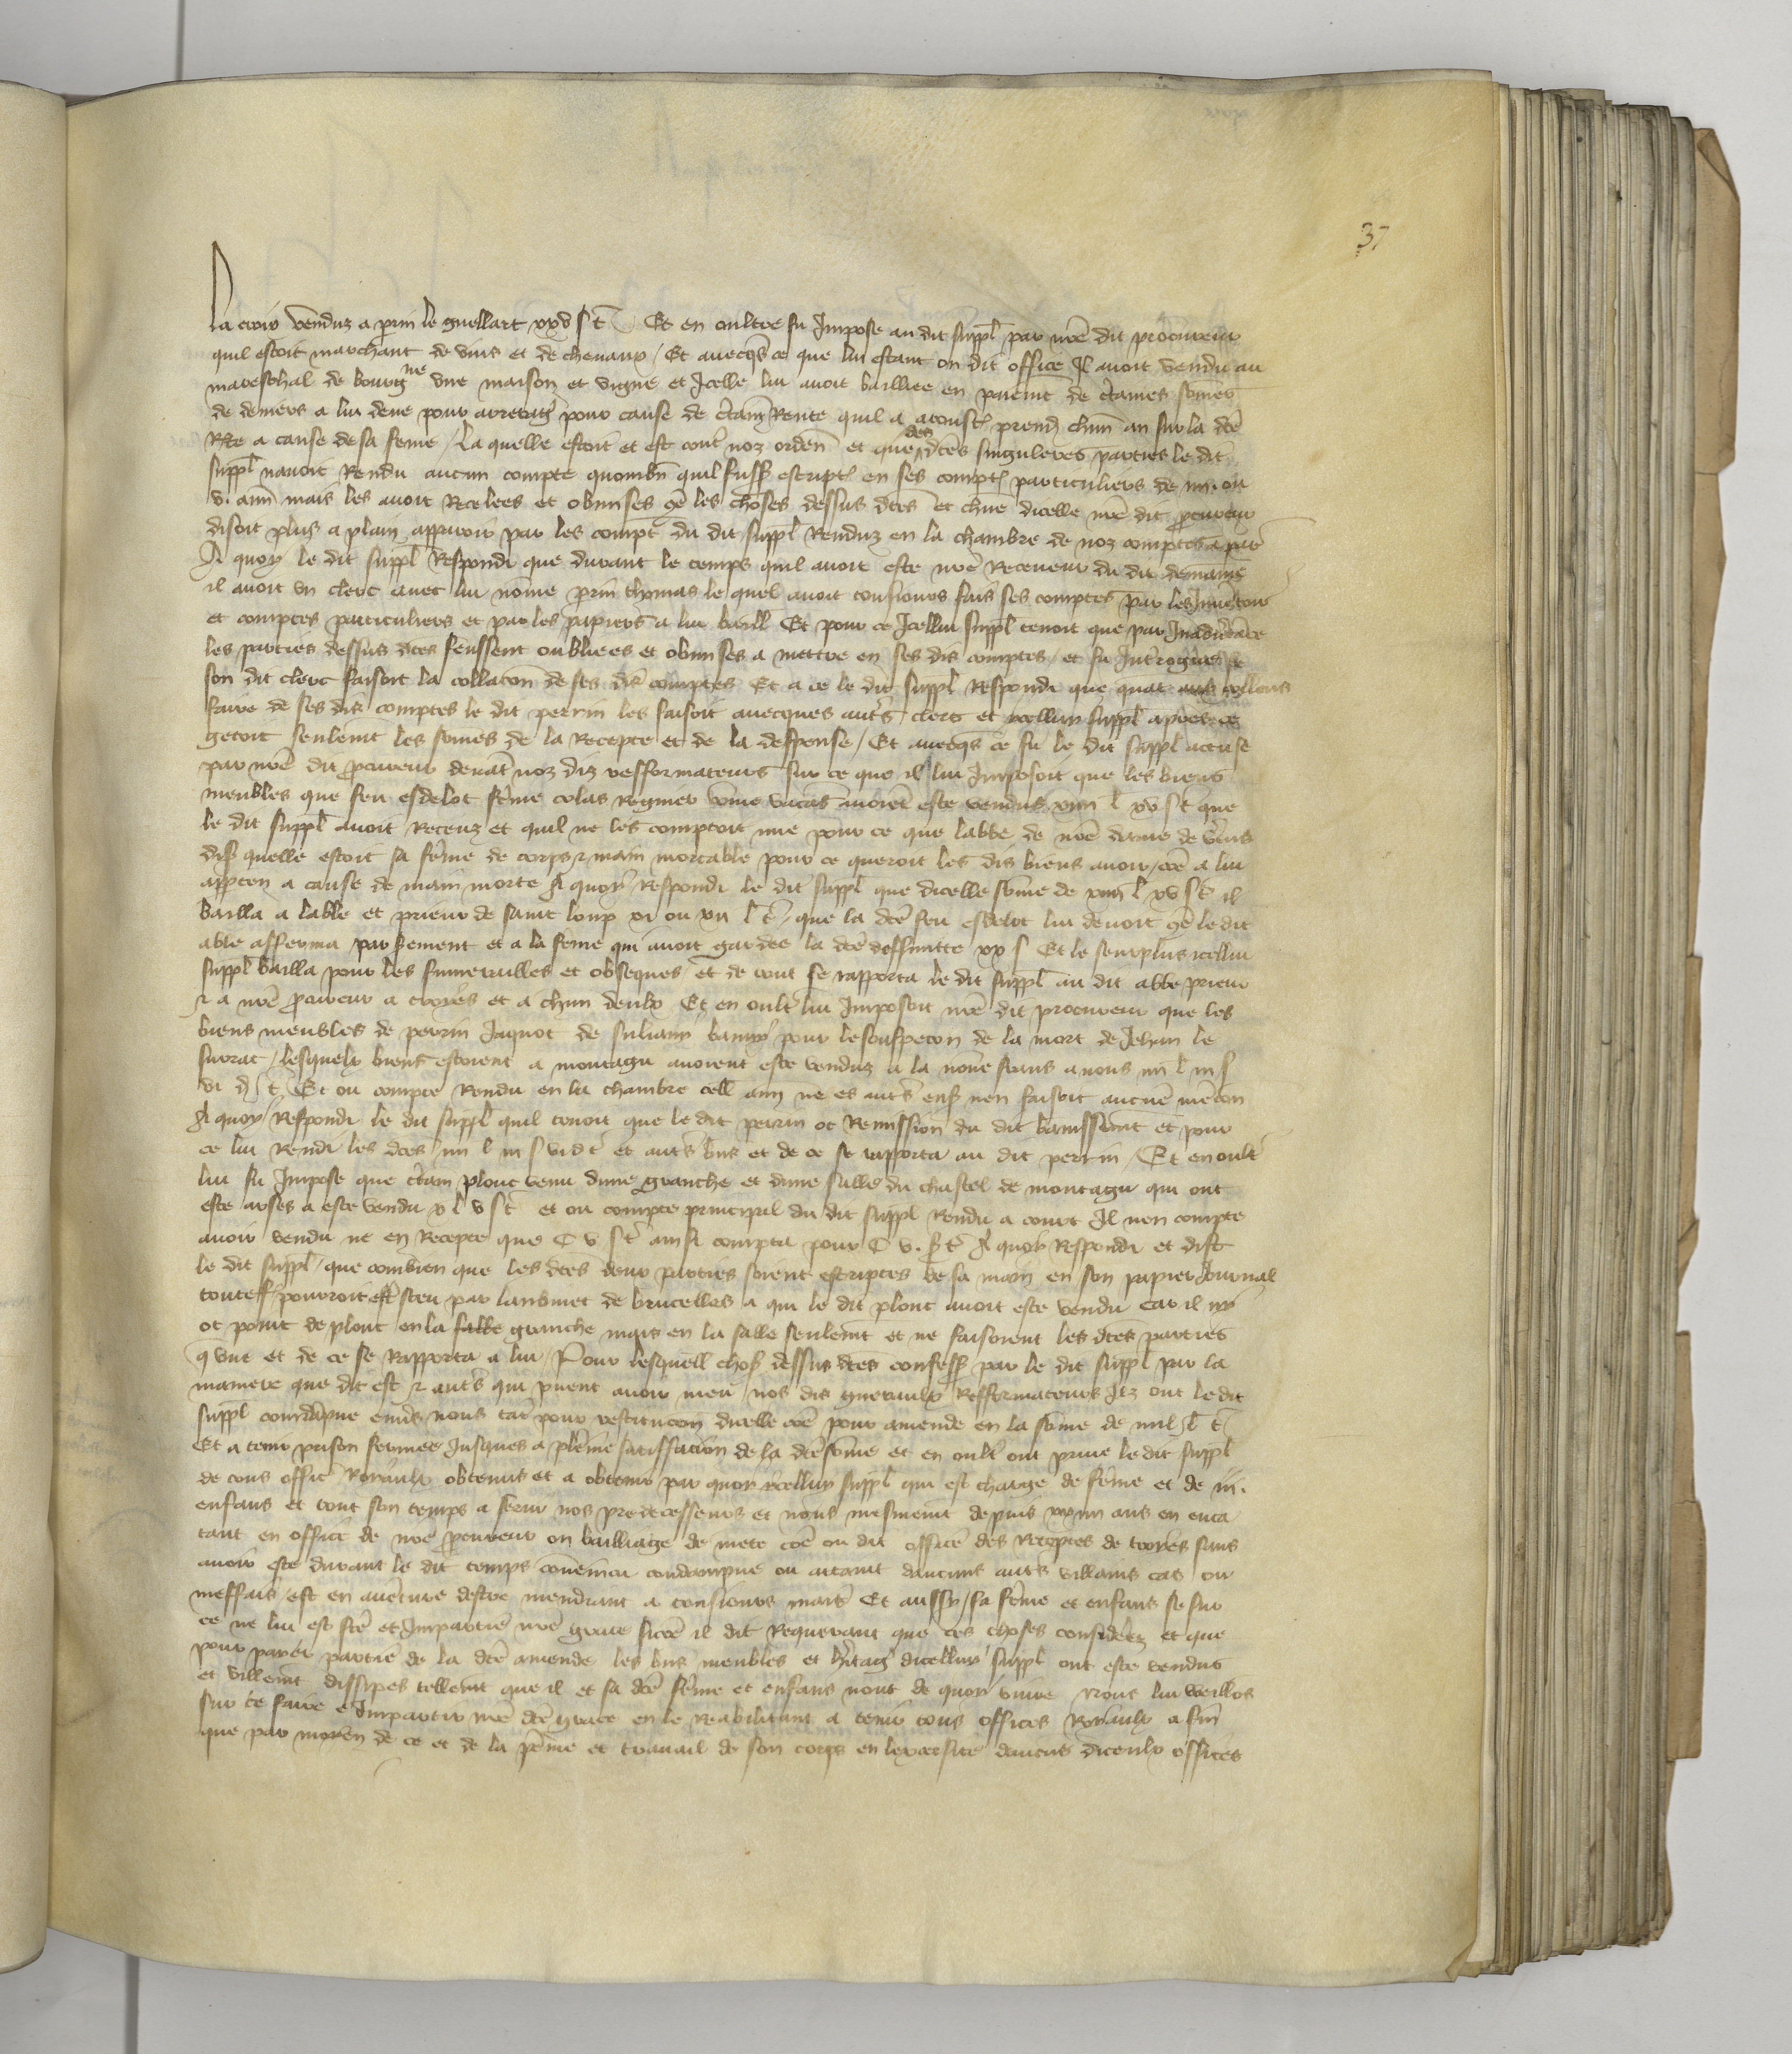 37
La croix venduz a prin le guellart xxv s t Et en oultre fu Impose au dit suppl par nre dit procureur
quil estoit marchant de vins et de chevaux / Et avecqs ce que lui estant on dit office Il avoit vendu au
mareschal de bourgne une maison et vigne et Icelle lui avoit bailliee en paiemt de ctaines somes
de deniers a lui deue pour arrerag pour cause de ctain Rente quil a acoust prend chun an sur la dce
Rce a cause de sa feme / La quelle estoit et est cont noz orden et que des dces singuleres parties le dit
suppl navoit Rendu aucun compte quombn quil fuss escript en ses compt particuliers de iiii ou
v. ann mais les avoit Recelees et obmises coe les choses dessus dces et chune dicelle nre dit pcureur
disoit plus a plain apparoir par les compt du dit suppl Renduz en la chambre de noz comptes a par
A quoy le dit suppl Respondi que durant le temps quil avoit este nre Receveur du dit demaine
il avoit un clerc avec lui nome prin thomas le quel avoit tousiours fais ses comptes par les Invetoir
et comptes particuliers et par les papiers a lui baill Et pour ce Icellui suppl tenoit que par Inadvtace
les parties dessus dces feussent oubliees et obmises a mettre en ses dis comptes / et fu Introguez se
son dit clerc faisoit la collacon de ses dis comptes Et a ce le dit suppl Respondi que quat
faire de ses dis comptes le dit perrin les faisoit avecques auts clers et icelluy suppl apres ce
getoit seulemt les somes de la Recepte et de la despense / Et avecqs ce fu le dit suppl accuse
par nre dit pcureur devat noz diz refformateurs sur ce que il lui Imposoit que les biens
meubles que feu esdelot feme colas Regnier come vacas avoiet este vendus xiiii l xv s t que
le dit suppl avoit Receuz et quil ne les comptoit mie pour ce que labbe de nre dame de
diss quelle estoit sa feme de corps et main mortable pour ce queroit les dis biens avoir coe a lui
apptens a cause de main morte A quoy Respondi le dit suppl que dicelle some de xiiii l xv s t il
bailla a labbe et prieur de saint loup xi ou xii l t / que la dce feu esdelot lui devoit coe le dit
abbe afferma par sement et a la feme qui avoit gardee la dce deffuncte xx s Et le seurplus icellui
suppl bailla pour les funerailles et obseques et de tout se rapporta le dit suppl au dit abbe prieur
et a nre pcureur a troyes et a chun deulx Et en oult lui Imposoit nre dit procureur que les
biens meubles de perrin Jaquot de banny pour le souspecon de la mort de Jehan le
surat / lesquelx biens estoient a montagu avoient este venduz a la nome frans a nous iiii l iii s
vi d t Et ou compte Rendu en la chambre cell ann ne es auts ens nen faisoit aucue mecon
A quoy Respondi le dit suppl quil tenoit que le dit perrin ot Remission du dit banissemt et pour
ce lui Rendi les dces iiii l iii s vi d t et auts bns et de ce se rapporta au dit perrin / Et en oult
lui fu Impose que ctain plont venu dune granche et dune salle du chastel de montagu qui ont
este arses a este vendu x l v s t et ou compte principal du dit suppl Rendu a court Il nen compte
avoir vendu ne en Recepte que C v s t ainsi compta pour C v. s t A quoy Respondi et dist
le dit suppl / que combien que les dces deux parties soient escriptes de sa main en son papier Journal
toutess pourroit est sceu par lansmet de brucelles a qui le dit plont avoit este vendu car il ny
ot point de plont en la salle granche mais en la salle seulemt et ne faisoient les dces parties
q une et de ce se Rapporta a lui / Pour lesquell chos dessus dces confess par le dit suppl par la
maniere que dit est et auts qui puent avoir meu nos dis gneraulx Refformateurs Ilz ont le dit
suppl condampne envs nous tat pour restitucon dicelle coe pour amende en la some de mil l t
Et a tenir prison fermee Jusques a pleine satisfacion de la dce some et en oult ont prive le dit suppl
de tous offic Royaulx obtenus et a obtenir par quoy icelluy suppl qui est charge de feme et de iii.
enfans et tout son temps a servi nos predecesseurs et nous mesmemt depuis xxiiii ans en enca
tant en office de nre pcureur on bailliage de meaux coe on dit office des Receptes de troyes sans
avoir este durant le dit temps convaincu condampne ou attaint daucuns auts villains cas ou
meffais / est en aventure destre mendiant a tousiours mais Et aussy / sa feme et enfans se sur
ce ne lui est fce et Impartie nre grace sicoe il dit Requerant que ces choses considerez et que
pour paier partie de la dce amende les bns meubles et hitag dicelluy suppl ont este vendus
et villemt dissipes tellemt que il et sa dce feme et enfans nont de quoy vivre Nous lui veillos
sur ce faire et Impartir nre dce grace en le Reabilitant a tenir tous offices Royaulx a fin
que par moyen de ce et de la peine et travail de son corps en lexersite daucus diceulx offices